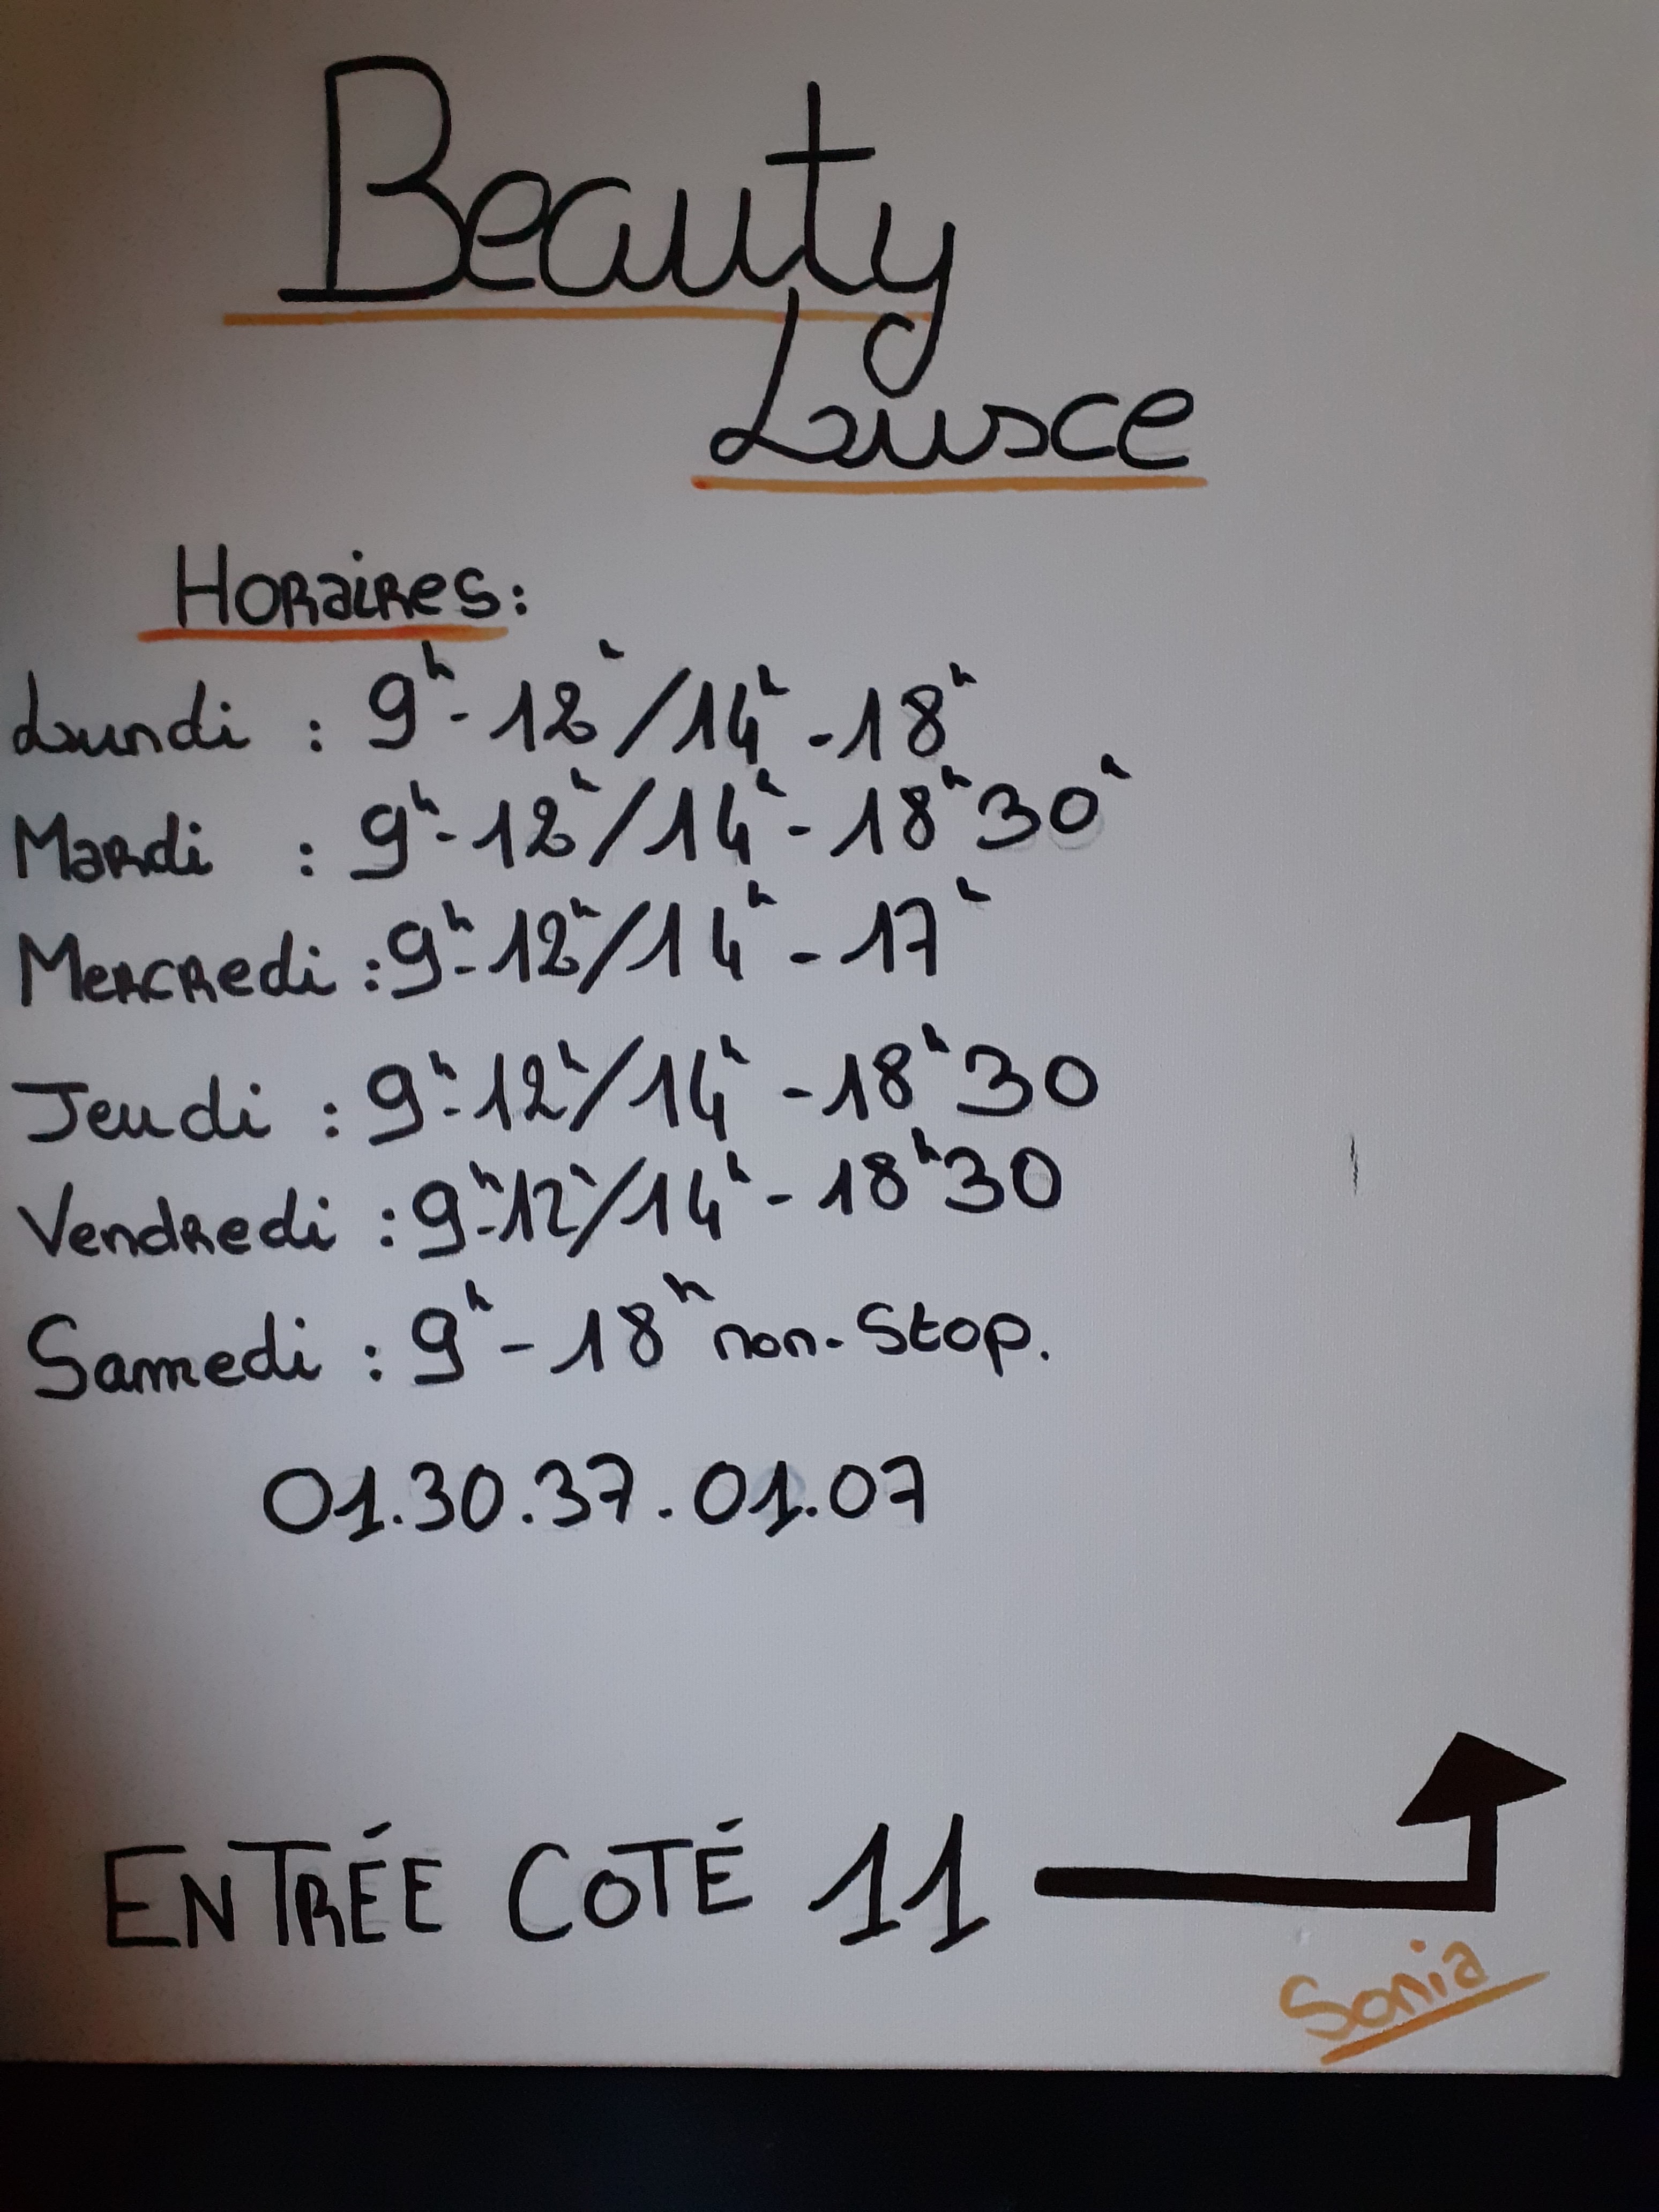 Beauty
Lusce
Horaires:
Lundi : 9h - 12h / 14h - 18h
Mardi : 9h - 12h / 14h - 18h30h
Mercredi : 9h - 12h / 14h - 17h
Jeudi : 9h - 12h / 14h - 18h30
Vendredi : 9h - 12h / 14h - 18h30
Samedi : 9h - 18h non-Stop.
01.30.37.01.07
ENTRÉE COTÉ 11
Sonia